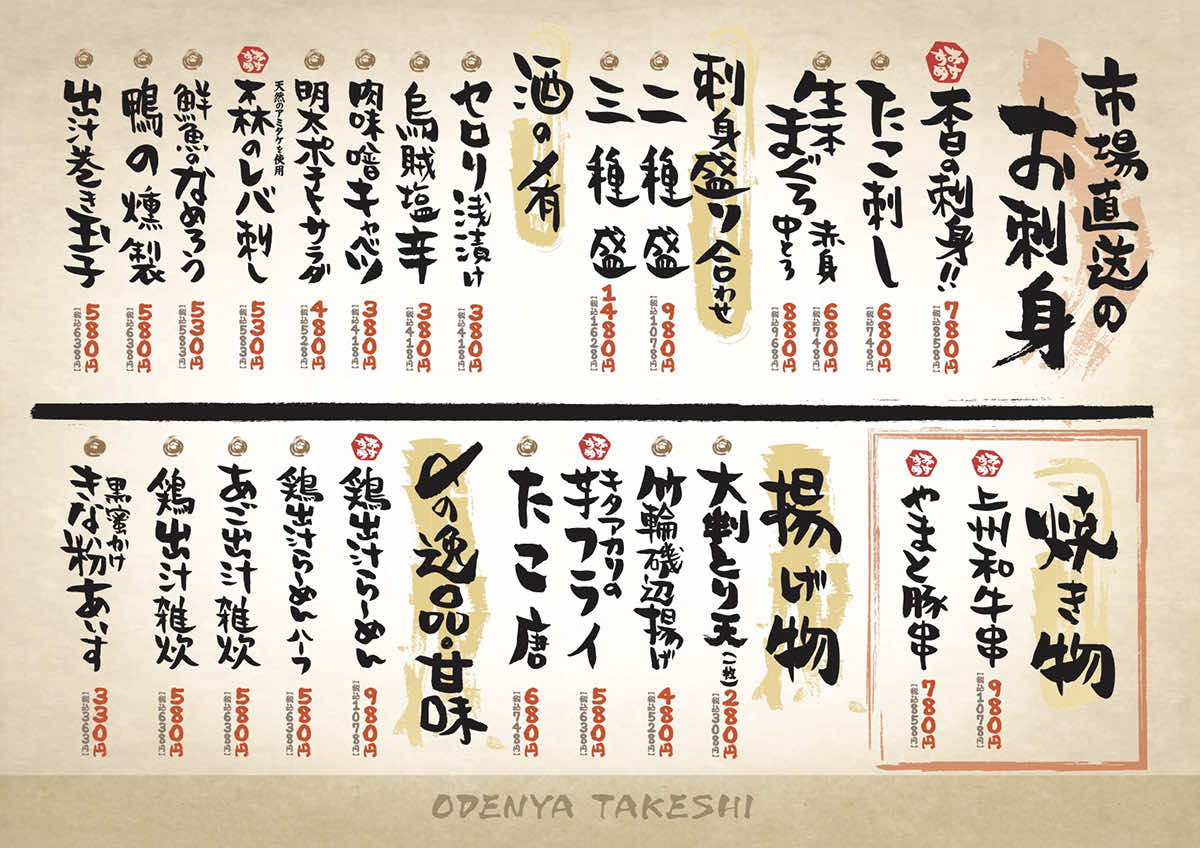 市場直送の
お刺身
おすすめ
本日の刺身!!
780円
【税込858円】
たこ刺し
680円
【税込748円】
生本まぐろ
赤身
680円
【税込748円】
中とろ
880円
【税込968円】
刺身盛り合わせ
二種盛
980円
【税込1078円】
三種盛
1480円
【税込1628円】
酒の肴
セロリ浅漬け
380円
【税込418円】
烏賊塩辛
380円
【税込418円】
肉味噌キャベツ
380円
【税込418円】
明太ポテトサラダ
480円
【税込528円】
おすすめ
天然のアミタケを使用
森のレバ刺し
530円
【税込583円】
鮮魚のなめろう
530円
【税込583円】
鴨の燻製
580円
【税込638円】
出汁巻き玉子
580円
【税込638円】
焼き物
おすすめ
上州和牛串
980円
【税込1078円】
おすすめ
やまと豚串
780円
【税込858円】
揚げ物
大判とり天(二枚)
280円
【税込308円】
竹輪磯辺揚げ
480円
【税込528円】
おすすめ
キタアカリの
芋フライ
580円
【税込638円】
たこ唐
680円
【税込748円】
〆の逸品・甘味
おすすめ
鶏出汁らーめん
980円
【税込1078円】
鶏出汁らーめんハーフ
580円
【税込638円】
あご出汁雑炊
580円
【税込638円】
鶏出汁雑炊
580円
【税込638円】
黒蜜かけ
きな粉あいす
330円
【税込363円】
ODENYA TAKESHI